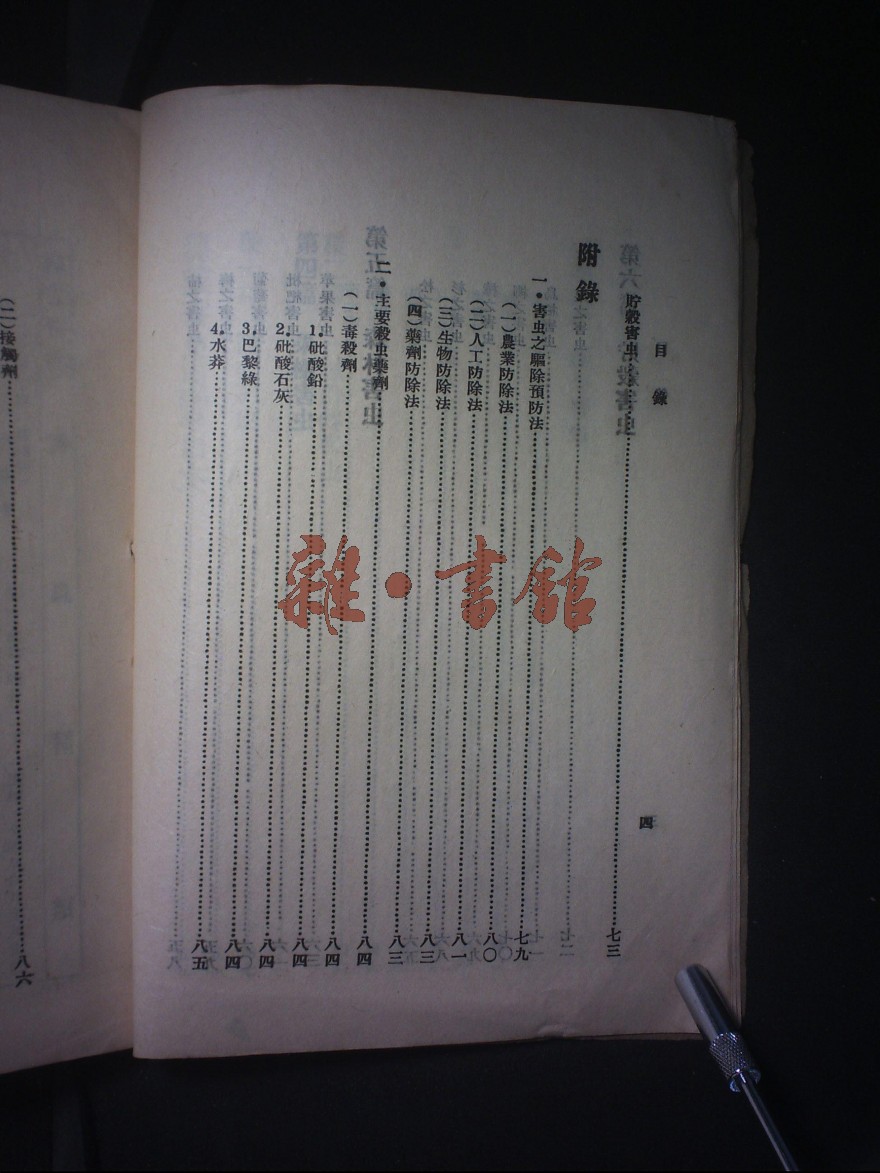 目錄 四
貯穀害虫……七三
附錄
一・害虫之驅除預防法……七九
(一)農業防除法……八〇
(二)人工防除法……八一
(三)生物防除法……八三
(四)藥劑防除法……八三
二・主要殺虫藥劑……八四
(一)毒殺劑……八四
1.砒酸鉛……八四
2.砒酸石灰……八四
3.巴黎綠……八四
4.水莽……八五
(二)接觸劑……八六
雜・書館